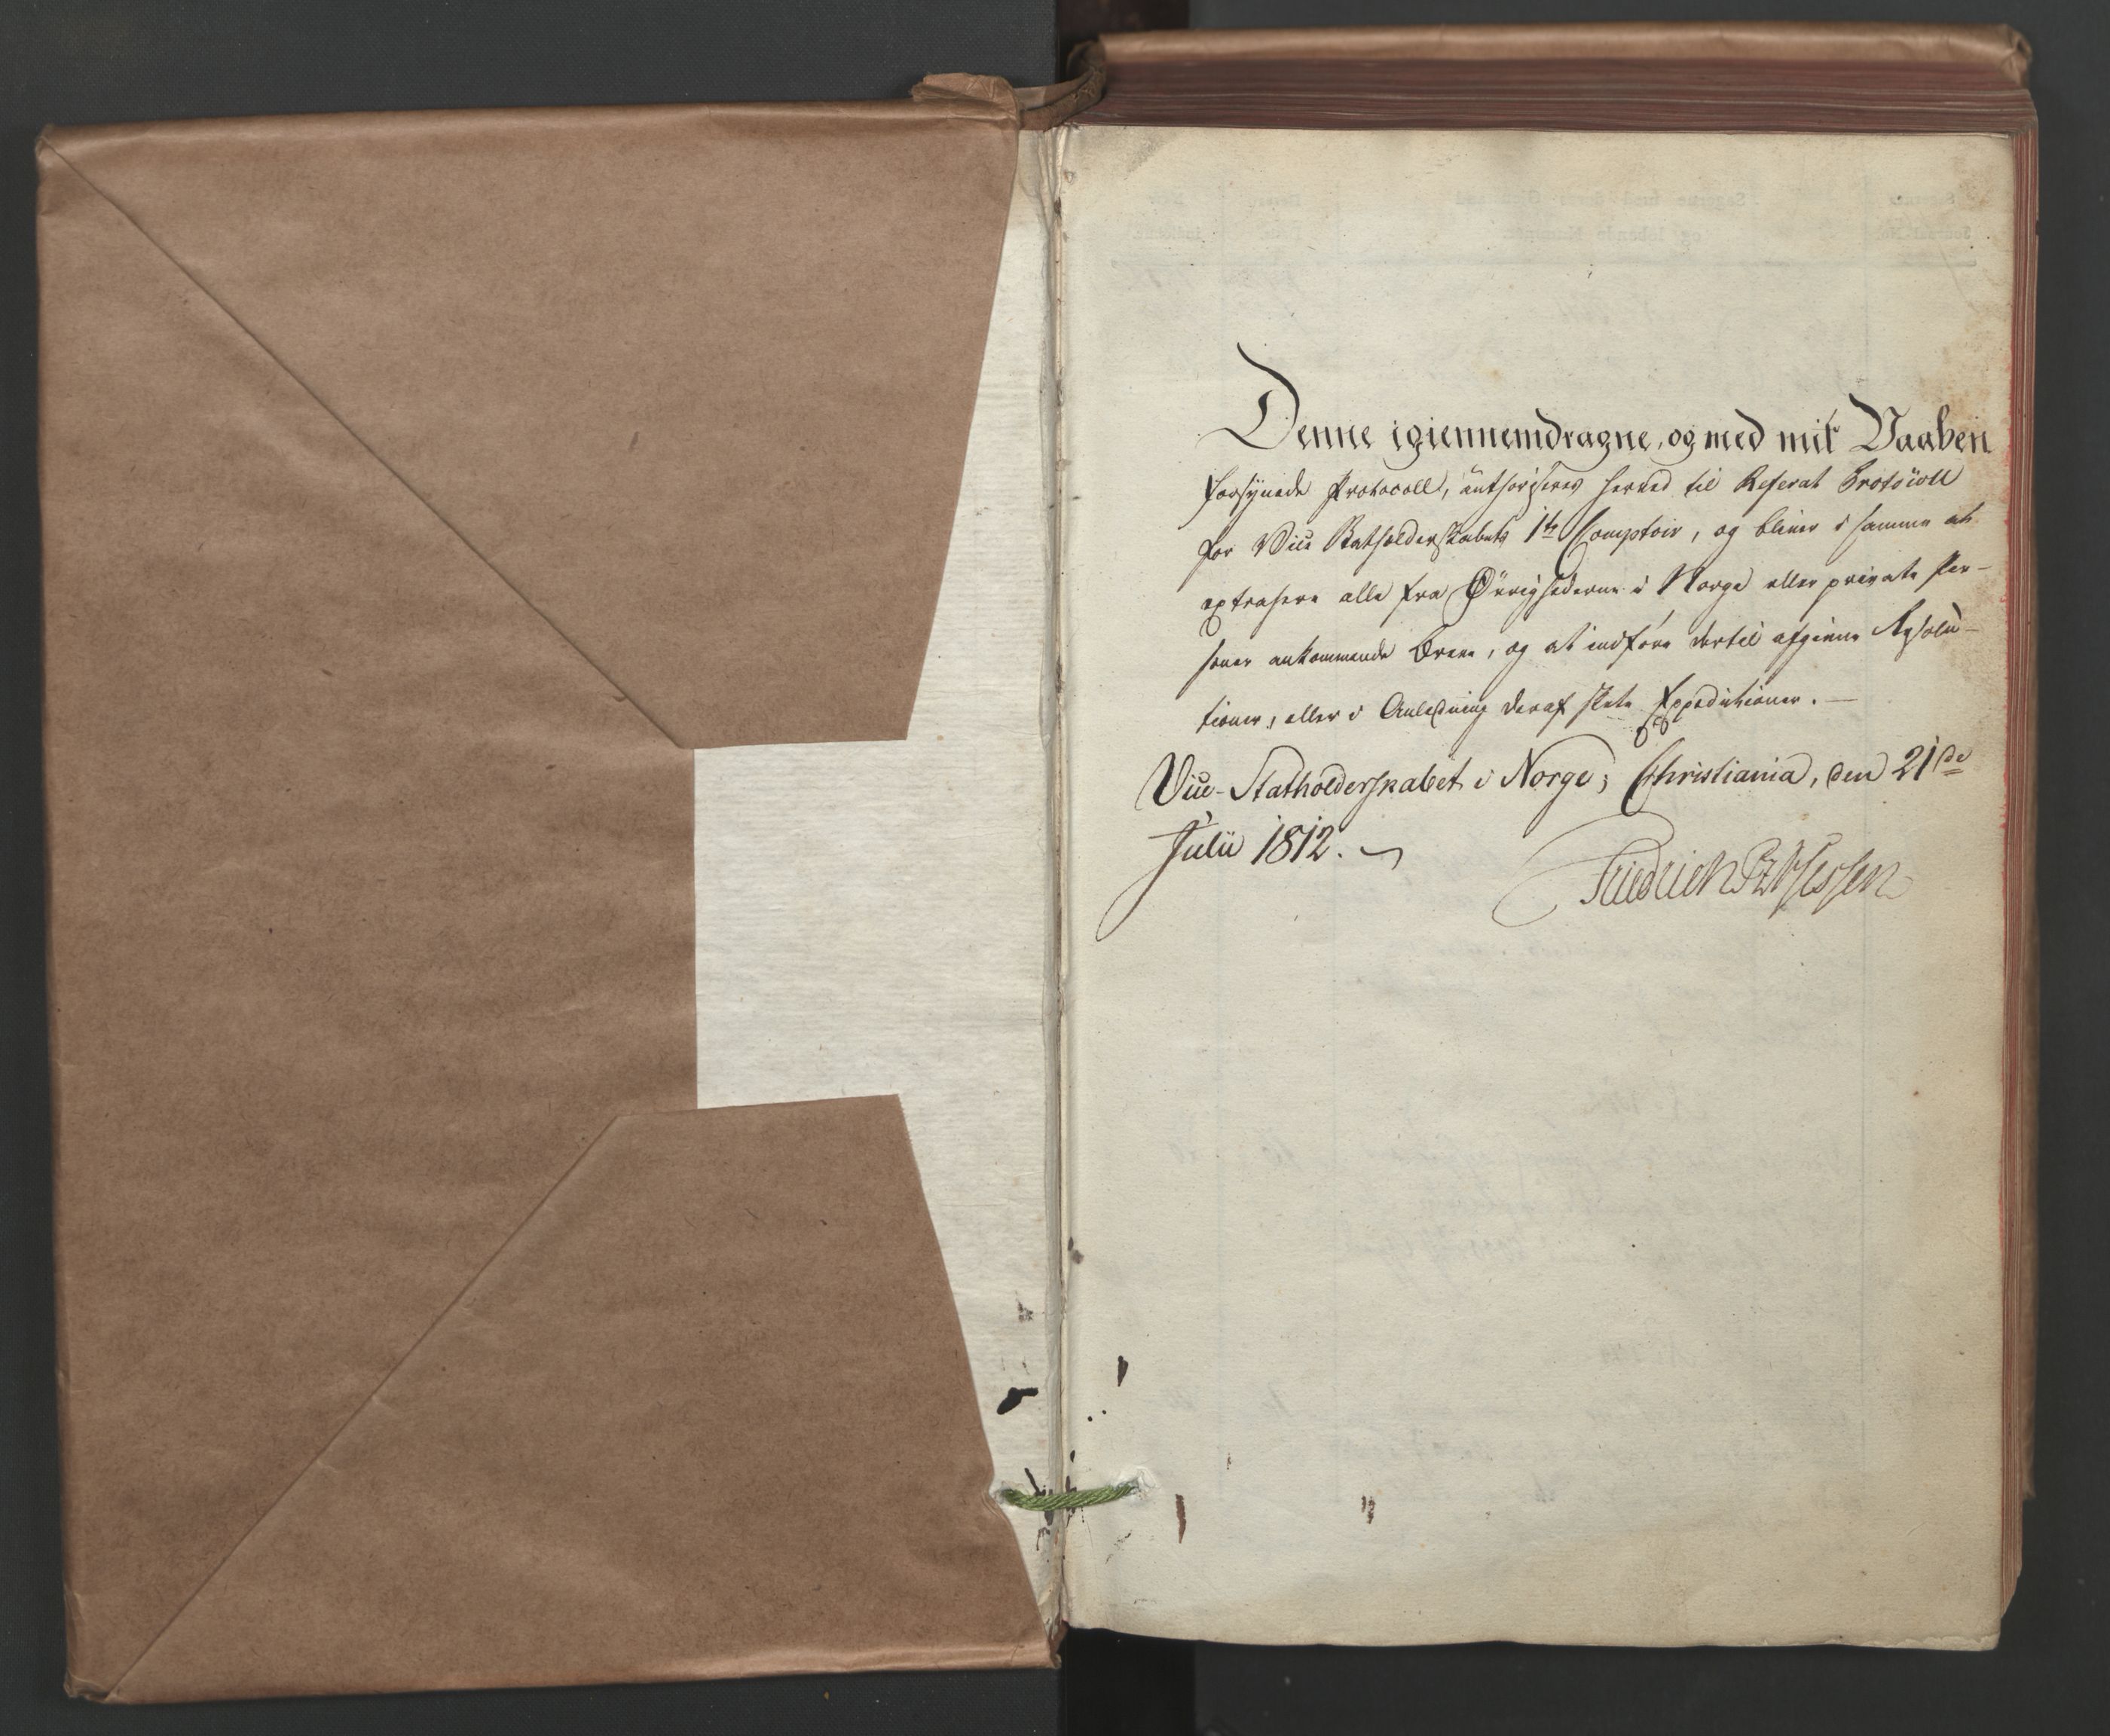 Denne igiennemdragne, og med mit Vaaben
forsynede Protocoll, authoriseres herved til Referat Protocoll
for Vice Statholderskabets 1te Comptoir, og bliver i samme at
extrahere alle fra Øvrighederne i Norge eller private Per-
soner ankommende Breve, og at indføre dertil afgivne Resolu-
tioner, eller i Anledning deraf skete Expeditioner. —
Vice-Statholderskabet i Norge, Christiania, den 21de
Julii 1812.
Friedrich Pz v Hessen